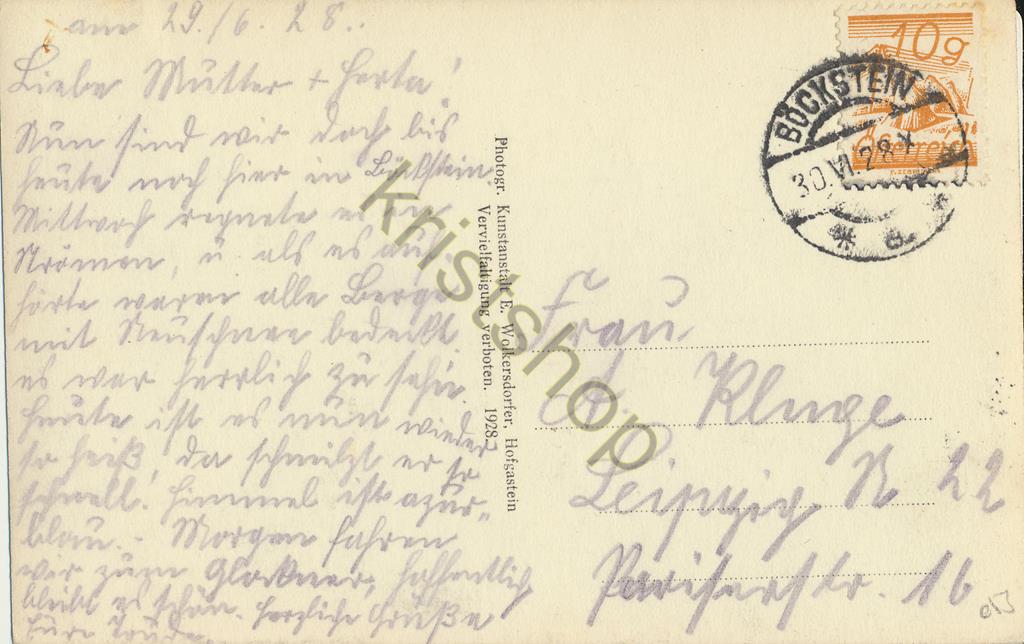 am 29./6. 28..
Liebe Mutter + Herta!
Nun sind wir doch bis
heute noch hier in Böckstein.
Mittwoch regnete es in
Strömen, u. als es auf-
hörte waren alle Berge
mit Neuschnee bedeckt
es war herrlich zu sehn.
Heute ist es nun wieder
so heiß, da schmilzt er so
schnell. Himmel ist azur-
blau. - Morgen fahren
wir zum Glockner, hoffentlich
bleibt es schön. Herzliche Grüße
Eure
Photogr. Kunstanstalt E. Wolkersdorfer, Hofgastein
Vervielfältigung verboten. 1928
kristshop
10g
Österreich
BÖCKSTEIN
30.VI.28
* a
Frau
Klinge
Leipzig N 22
Pariserstr. 16